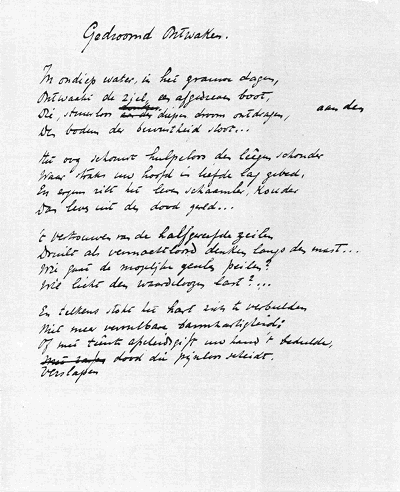 Gedroomd Ontwaken.
In ondiep water, in het grauwe dagen,
Ontwaakt de ziel, een afgedreven boot,
Die, stuurloos aan den diepen droom ontdragen,
Den bodem der bewustheid stoot...
Het oog schouwt hulpeloos den leêgen schonder
Waar straks uw hoofd in liefde lag gebed,
En ergens rilt het leven schaamler, kouder
Dan leven uit den dood gered...
't vertrouwen van de halfgereefde zeilen
Druilt als vernachtloosd denken langs den mast...
Wie gaat de mogelijke geulen peilen?
Wie licht den waardeloozen last?...
En telkens stokt het hart zich te verbeelden
Met meer barmhartigheid:
Of met uw hand 't bedeelde,
Verslapen dood die pijnloos scheidt.